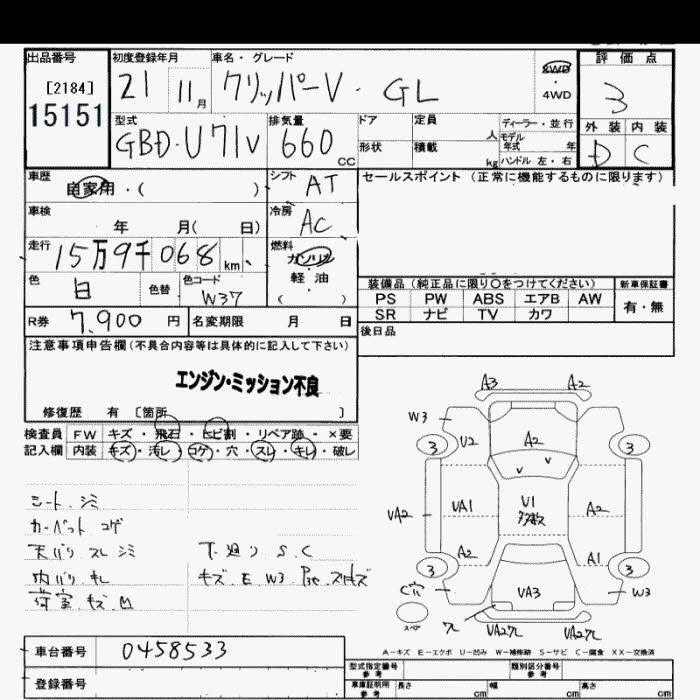 出品番号 初度登録年月 車名・グレード 2WD 評価点
[2184] 21 11月 クリッパーV・GL ・4WD 3
15151 型式 排気量 ドア 定員 ディーラー・並行 外装 内装
GBD-U71V 660 CC 形状 積載 人 モデル年式 年 D C
kg ハンドル 左・右
車歴 シフト セールスポイント(正常に機能するものに限ります)
自家用・( ) AT
車検 冷房
年 月( 日) AC
走行 燃料
15万9千068 km ガソリン
色 色替 色コード 軽・油
白 W37 ( )
装備品(純正品に限り○をつけてください) 新車保証書
PS PW ABS エアB AW 有・無
SR ナビ TV カワ
R券 7,900 円 名変期限 月 日
後日品
注意事項申告欄(不具合内容等は具体的に記入して下さい)
エンジン・ミッション不良
修復歴 有 [箇所 ]
検査員 FW キズ・飛石・ヒビ割・リペア跡・×要
記入欄 内装 キズ・汚レ・コゲ・穴・スレ・キレ・破レ
シート、シミ
カーペット コゲ
天バリ スレ シミ 下廻り S.C
内バリ キレ キズ.E W3
荷室.キズ.凹
A3 A2
W3 U2 A2
3 3
VA2 VA1 U1 A2
A2 A1
3 3
C穴 VA3 W3
スペア VA2 VA2
A-キズ E-エクボ U-凹み W-補修跡 S-サビ C-腐食 XX-交換済
車台番号 0458533
登録番号
型式指定番号 参考 類別区分番号 参考
車庫証明用 参考 長さ cm 幅 cm 高さ cm